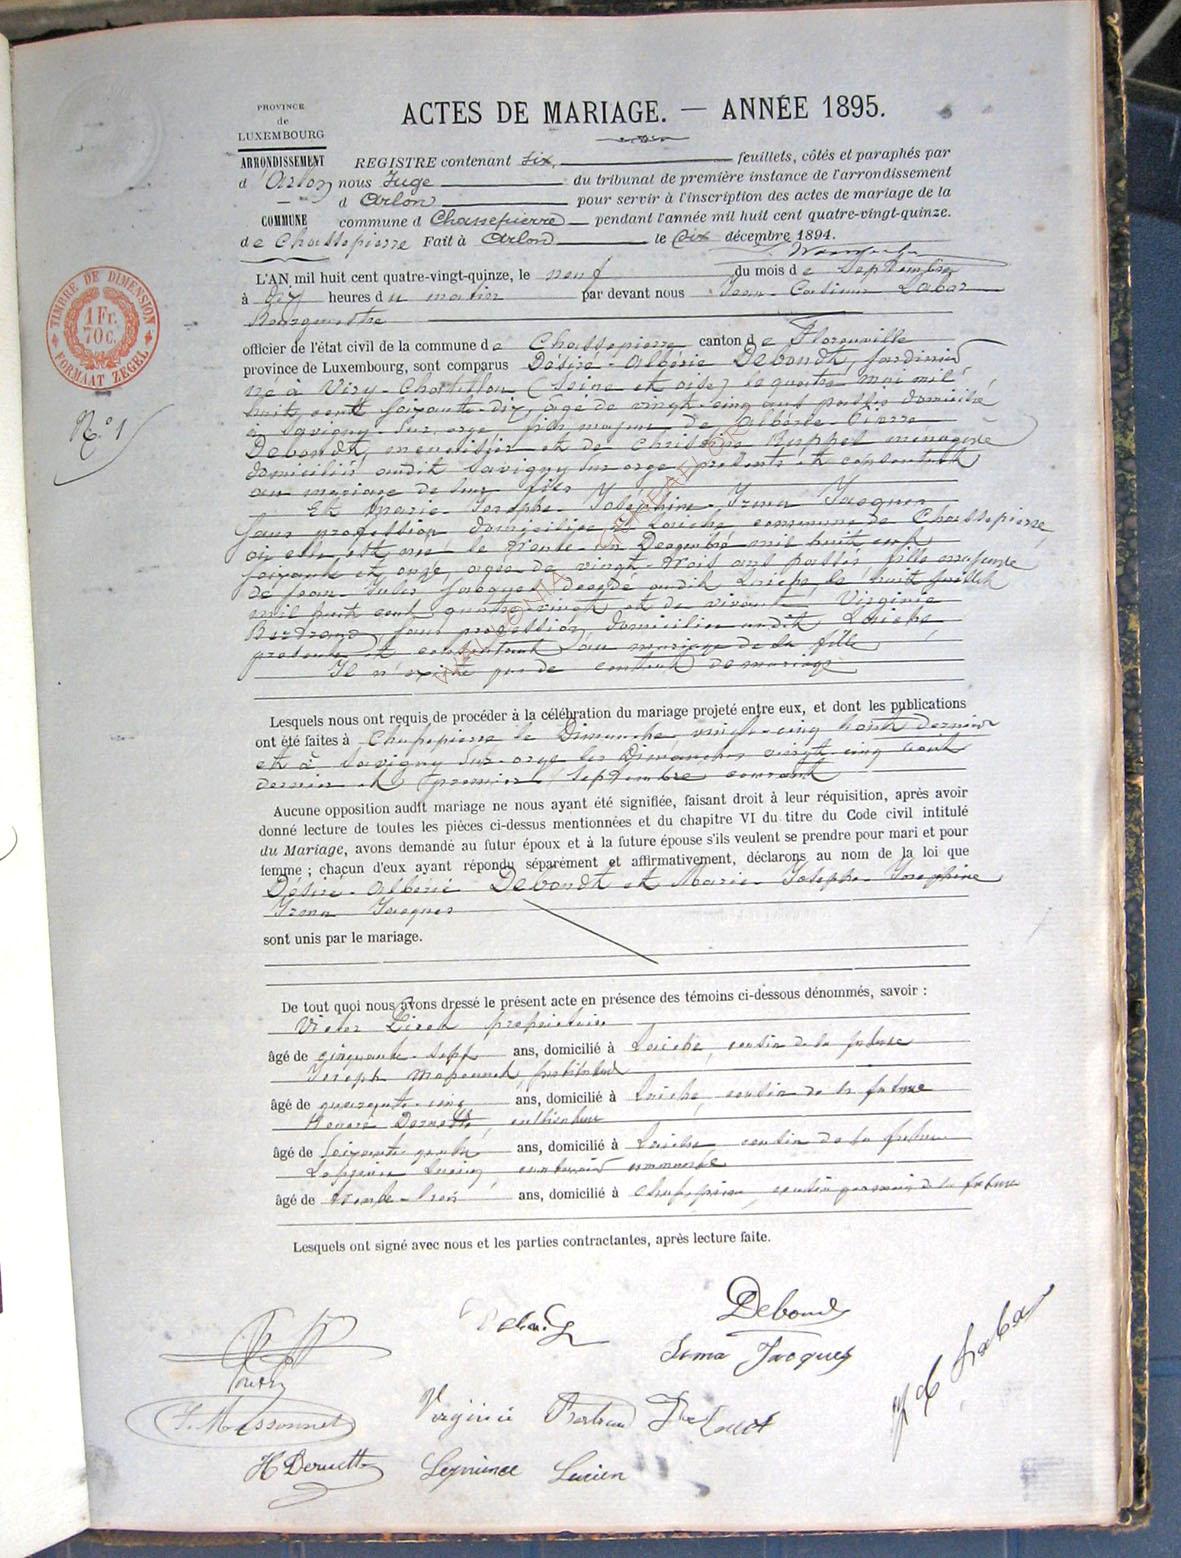 PROVINCE
de
LUXEMBOURG
ARRONDISSEMENT
d'Arlon
COMMUNE
de Chassepierre
ACTES DE MARIAGE. — ANNÉE 1895.
REGISTRE contenant six feuillets, côtés et paraphés par
nous Juge du tribunal de première instance de l'arrondissement
d'Arlon pour servir à l'inscription des actes de mariage de la
commune d Chassepierre pendant l'année mil huit cent quatre-vingt-quinze.
Fait à Arlon le dix décembre 1894.
TIMBRE DE DIMENSION
1 Fr.
70 c.
FORMAAT ZEGEL
N.° 1
L'AN mil huit cent quatre-vingt-quinze, le neuf du mois de septembre
à dix heures du matin par devant nous Jean-Casimir Labar
Bourgmestre
officier de l'état civil de la commune de Chassepierre canton de Florenville
province de Luxembourg, sont comparus Désiré-Albéric Debondt, Jardinier
né à Viry-Chatillon (Seine et oise) le quatre mai mil
huit cent soixante-dix, âgé de vingt-cinq ans passés domicilié
à Savigny-Sur-orge fils majeur de Pierre
Debondt, menuisier et de Ruppel ménagère
domiciliés audit Savigny sur orge présents et consentant
au mariage de leur fils
Et Marie-Josèphe-Joséphine-Irma Jacques
sans profession domiciliée à Laiche commune de Chassepierre,
où elle est née le trente-un Décembre mil huit cent
soixante et onze, agée de vingt-trois ans passés fille majeure
de Jean-Jules Jacques décédé audit Laiche le huit juillet
mil huit cent quatre vingt et de vivante Virginie
Bertrand, sans profession domiciliée audit Laiche
présente et consentant au mariage de sa fille
Il n'existe pas de contrat de mariage
Lesquels nous ont requis de procéder à la célébration du mariage projeté entre eux, et dont les publications
ont été faites à Chassepierre le Dimanche vingt-cinq Août dernier
et à Savigny sur-orge les Dimanches vingt-cinq août
dernier et premier septembre courant
Aucune opposition audit mariage ne nous ayant été signifiée, faisant droit à leur réquisition, après avoir
donné lecture de toutes les pièces ci-dessus mentionnées et du chapitre VI du titre du Code civil intitulé
du Mariage, avons demandé au futur époux et à la future épouse s'ils veulent se prendre pour mari et pour
femme ; chacun d'eux ayant répondu séparément et affirmativement, déclarons au nom de la loi que
Désiré-Albéric Debondt et Marie-Josèphe-Joséphine
Irma Jacques
sont unis par le mariage.
De tout quoi nous avons dressé le présent acte en présence des témoins ci-dessous dénommés, savoir :
Victor propriétaire
âgé de cinquante-sept ans, domicilié à Laiche, cousin de la future
Joseph Massonnet,
âgé de quarante-cinq ans, domicilié à Laiche, cousin de la future
Honoré cultivateur
âgé de soixante quatre ans, domicilié à Laiche cousin de la future
Leprince Lucien
âgé de trente-trois ans, domicilié à Chassepierre, cousin germain de la future
Lesquels ont signé avec nous et les parties contractantes, après lecture faite.
Debondt
Irma Jacques
J. Massonnet
Virginie Bertrand
Leprince Lucien